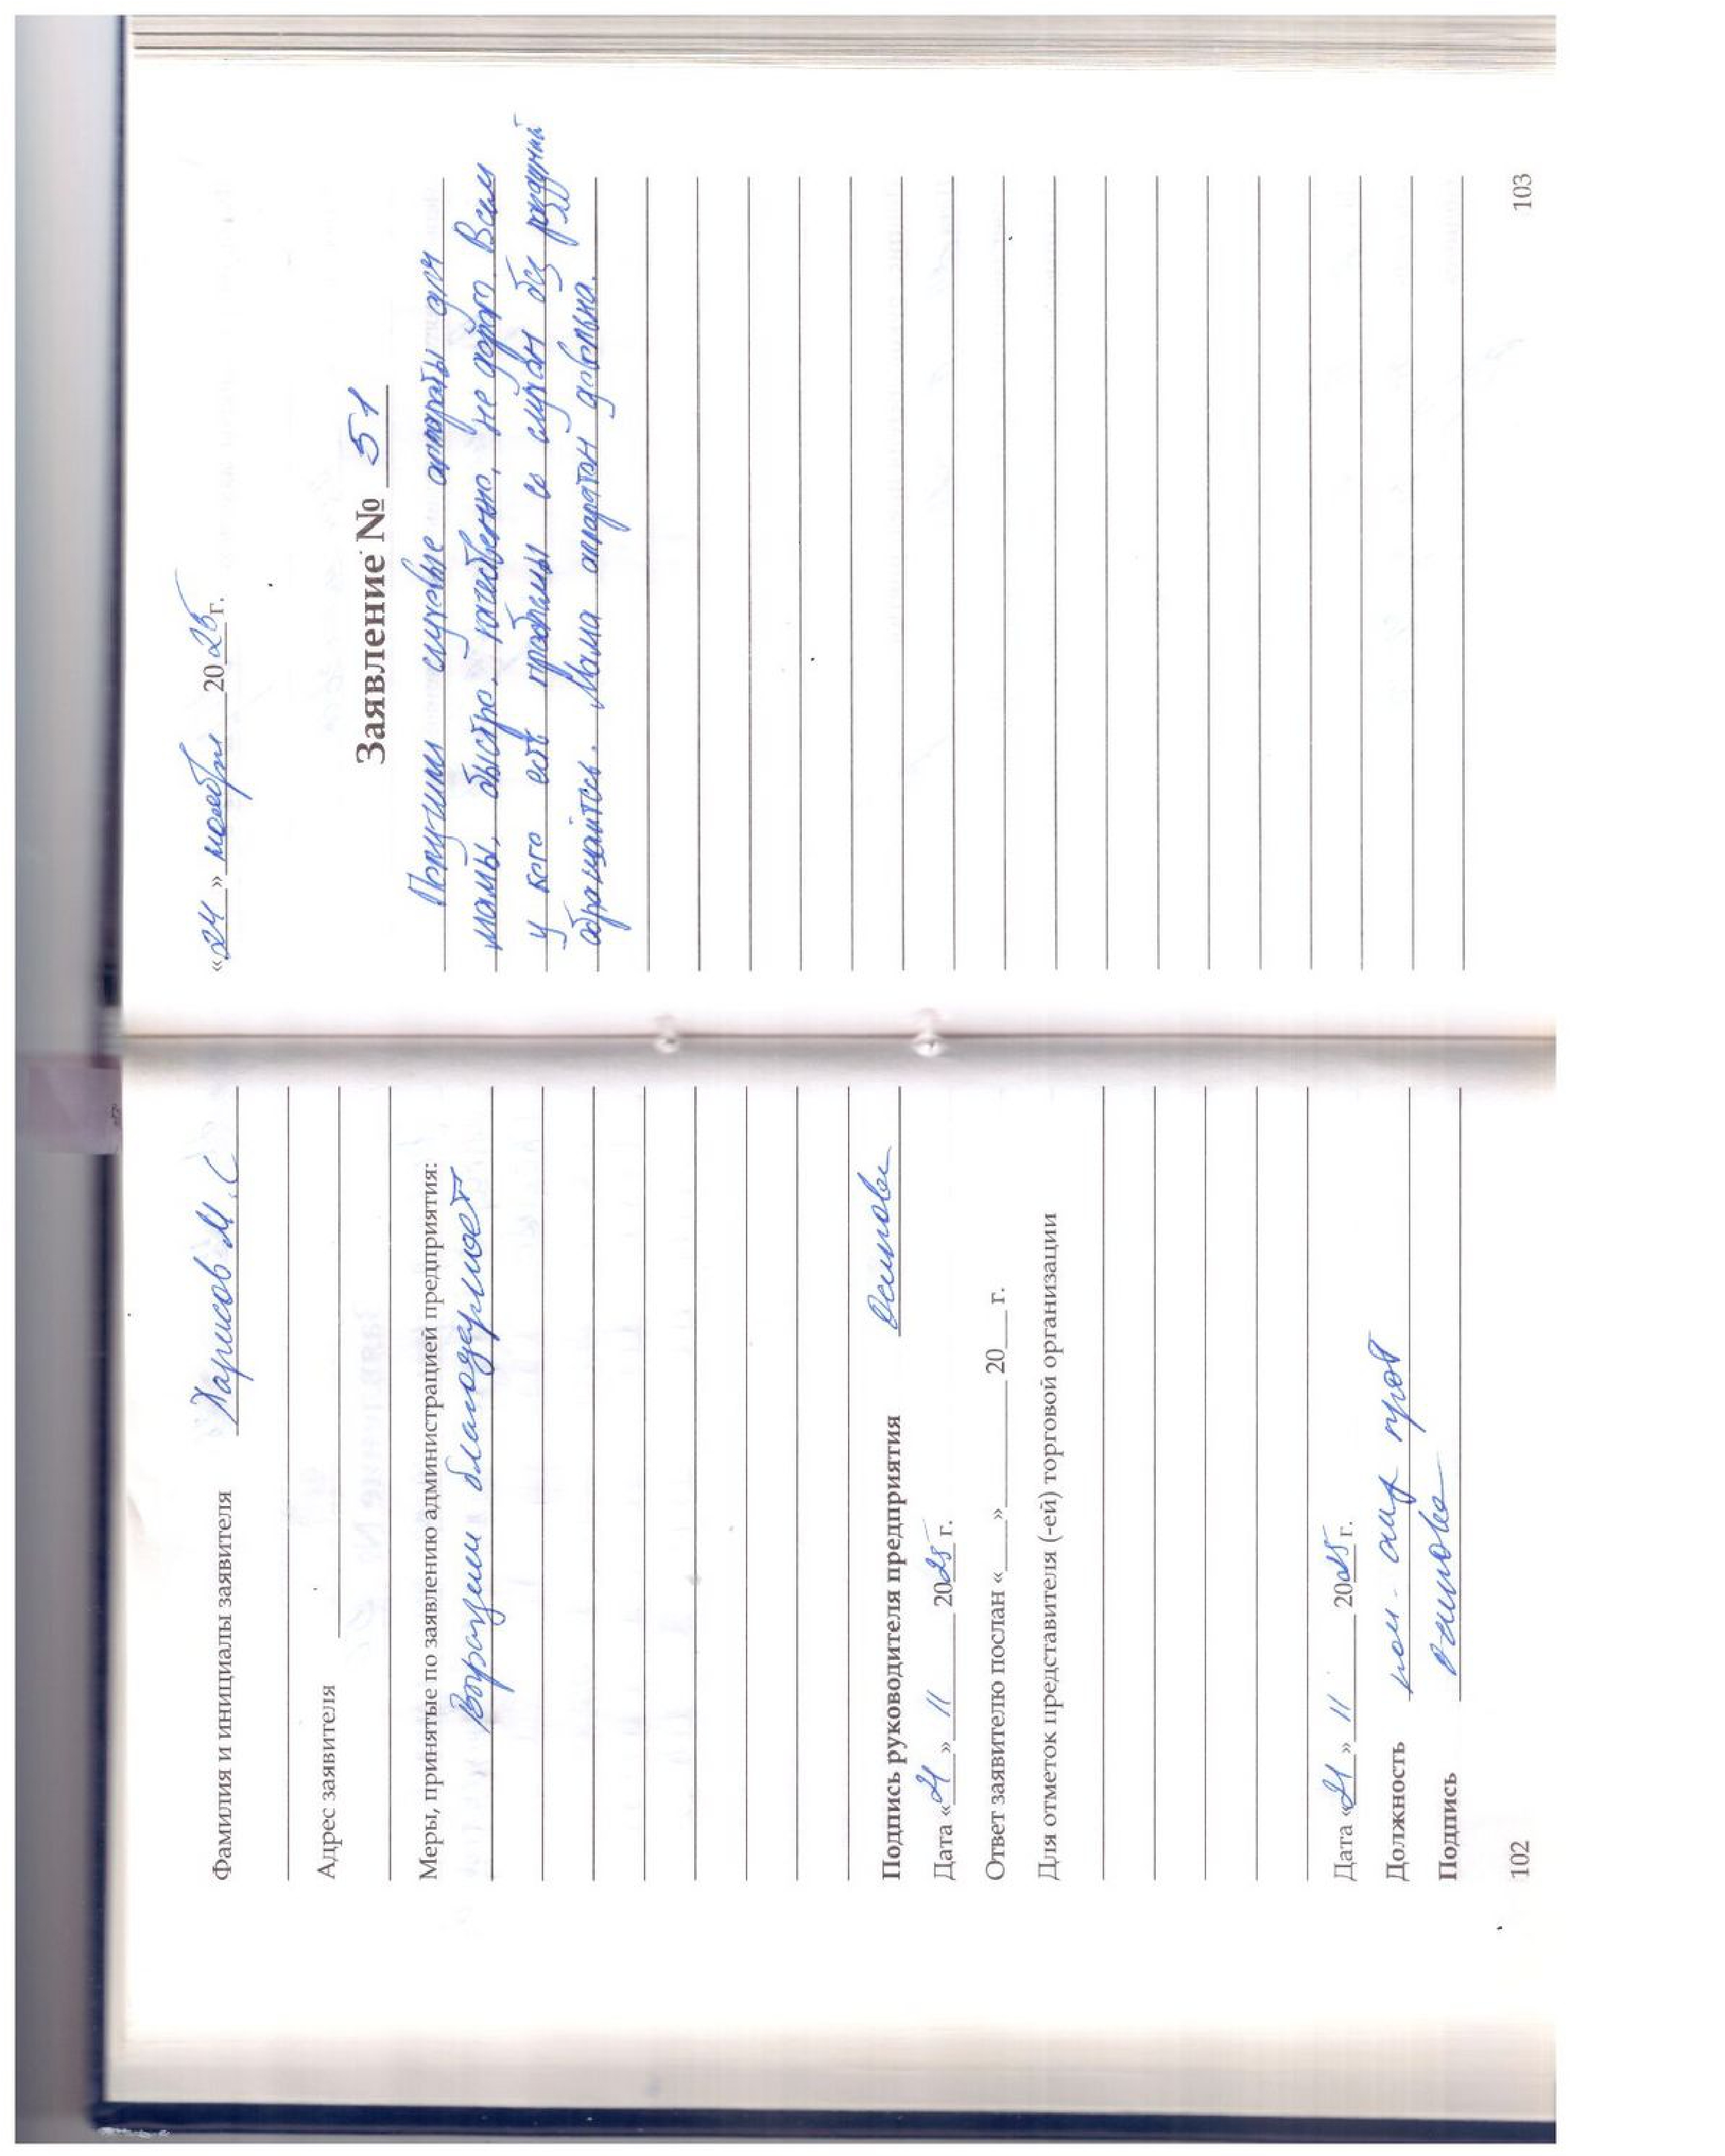 Фамилия и инициалы заявителя Ларисов М.С
Адрес заявителя
Меры, принятые по заявлению администрацией предприятия:
Выразили благодарност
Подпись руководителя предприятия
Дата «24» 11 2025 г.
Ответ заявителю послан «___» ________ 20___ г.
Для отметок представителя (-ей) торговой организации
Дата «24» 11 2025 г.
Должность
Подпись
102
«24» ноября 2025 г.
Заявление № 51
Получили слуховые аппараты для
мамы, быстро, качественно, не дорого. Всем
у кого есть проблемы со слухом без раздумий
обращайтесь. Мама аппаратом довольна.
103